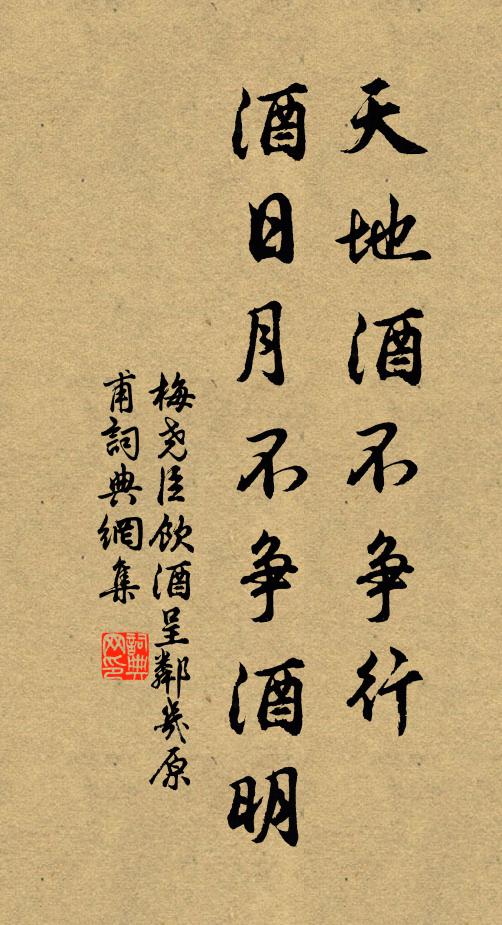 天地酒不争行
酒日月不争酒明
梅尧臣飲酒呈鄰幾原
甫詞典網集
詞典网印